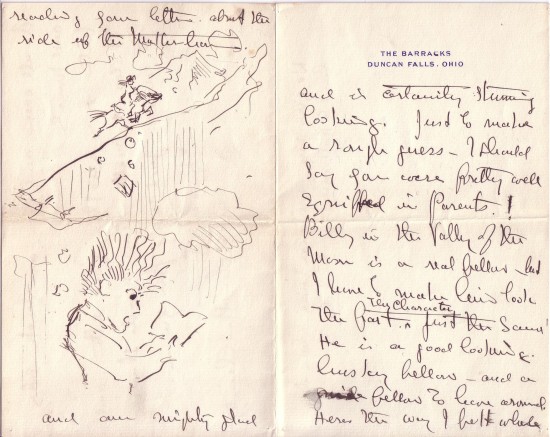 reading your letter about the
ride up the Matterhorn
and am mighty glad
THE BARRACKS
DUNCAN FALLS, OHIO
and is certainly stunning
looking. Just to make
a rough guess - I should
say you were pretty well
equipped in Parents.!
Billy in the Valley of the
Moon is a real fellow - but
I have to make him look
The Character
the part. just the same!
He is a good looking.
husky fellow - and a
fellow to have around.
Heres the way I felt while